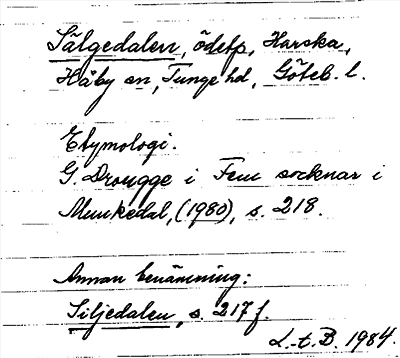 Sälgedalen, ödetp, Harska,
Håby sn, Tunge hd, Göteb. l.
Etymologi.
G. Drougge i Fem socknar i
Munkedal, (1980), s. 218.
Annan benämning:
Siljedalen, s. 217 f.
L.-t. B. 1984.